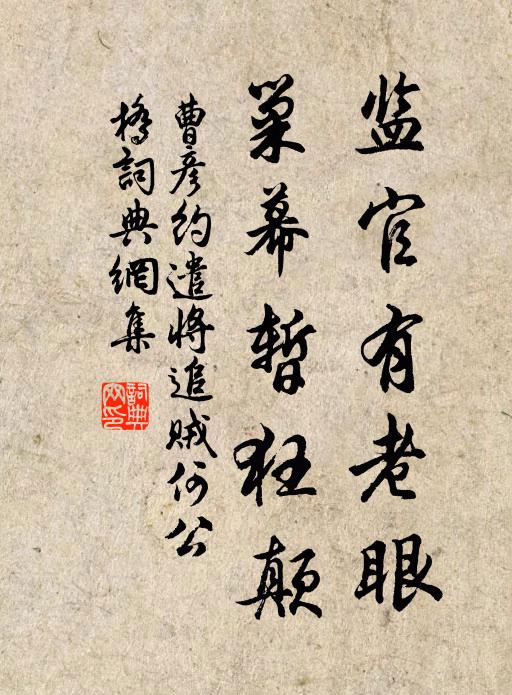 监官有老眼
巢幕暂狂颠
曹彦约遣将追贼何公
桥词典網集
詞典网印